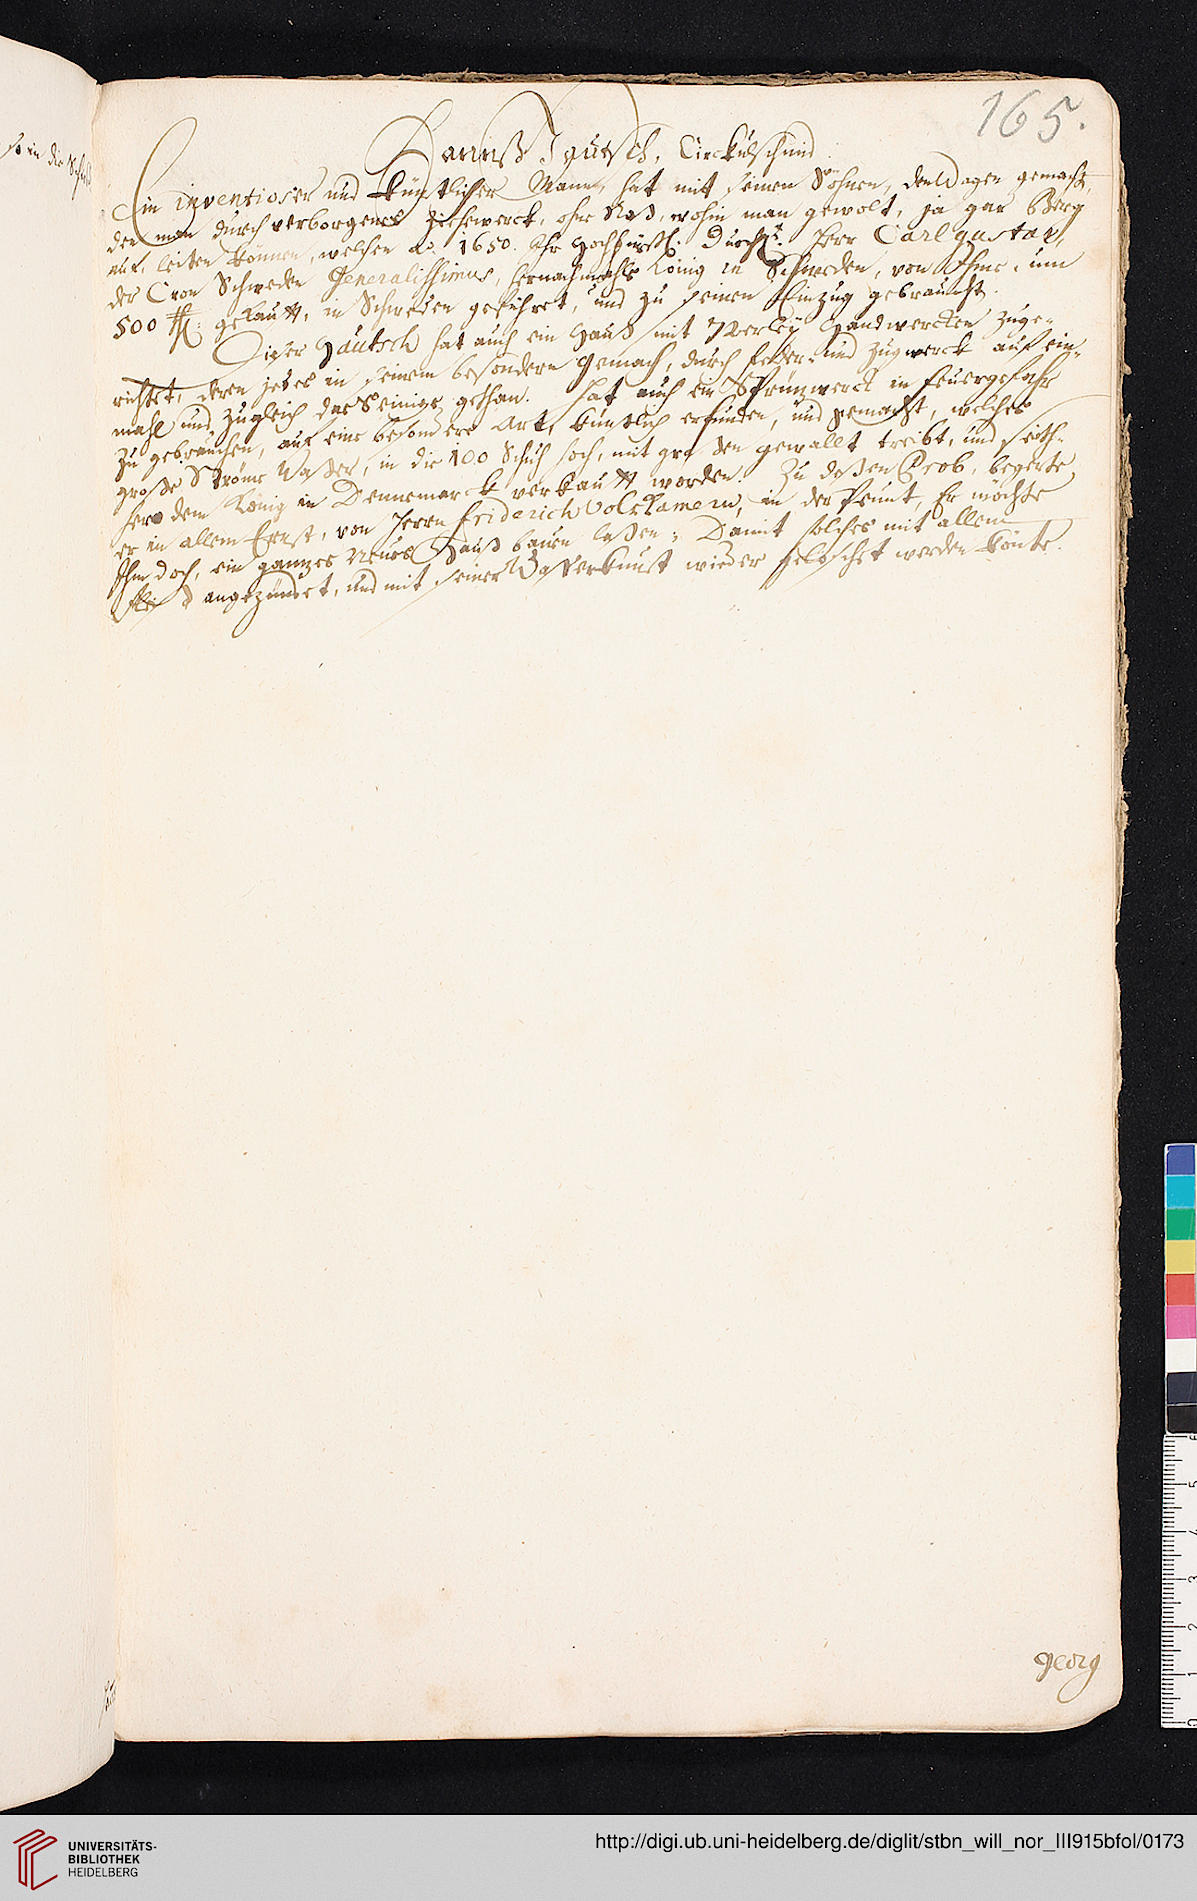 165.
Hannß Hautsch, Circkulschmid.
Ein inventioser und künstlicher Mann, hat mit seinen Söhnen, den Wagen gemacht,
den man durch verborgenes Ziehewerck, ohne Roß, wohin man gewolt, ja gar Berg
auf, leiten können, welchen Ao. 1650. Ihr Hochfürstl. Durchlt. Herr Carl Gustav,
der Cron Schweden Generalissimus, hernachmahls König in Schweden, von Ihme, um
500 fl. gekaufft, in Schweden geführet, und zu seinen Einzug gebraucht.
Dieser Hautsch hat auch ein Hauß mit Handwercken zuge-
richtet, deren jedes in seinem besondern Gemach, durch Feder- und Zugwerck auf ein-
mahl und zugleich das Seinige gethan. Hat auch ein Sprüzwerck in Feuergefahr
zu gebrauchen, auf eine besondere Art, künstlich erfunden, und gemacht, welches
große Ströme Waßer, in die 100 Schuh hoch, mit großen gewallt treibt, und seith-
hero dem König in Dennemarck verkaufft worden. Zu deßen Prob, begerte
er in allem Ernst, von Herrn Friderich Volckamern, in der Peunt, Er möchte
Ihm doch, ein ganzes Neues Hauß bauen laßen; Damit solches mit allem
angezündet, und mit seiner Waßerkunst wieder gelöschet werden könte.
georg
UNIVERSITÄTS-
BIBLIOTHEK
HEIDELBERG
http://digi.ub.uni-heidelberg.de/diglit/stbn_will_nor_III915bfol/0173